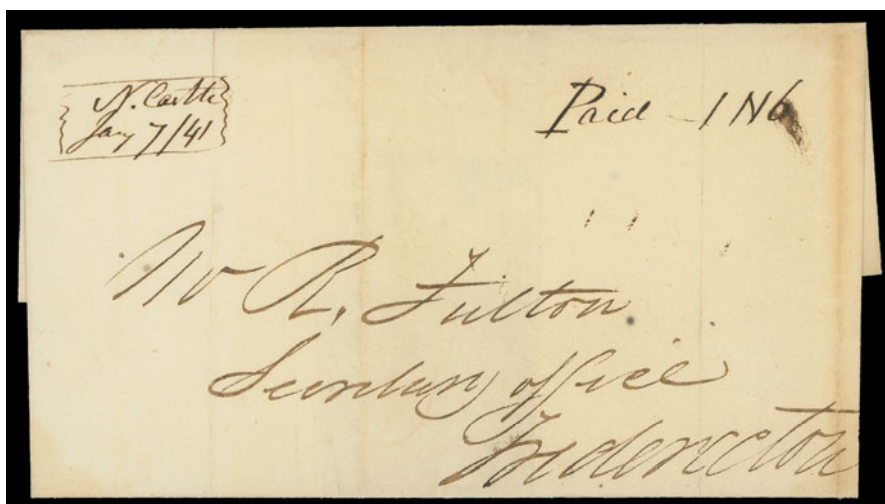 N. Castle
Jany 7/41
Paid - 1 N6
Mr R. Fulton
Secretary office
Fredericton